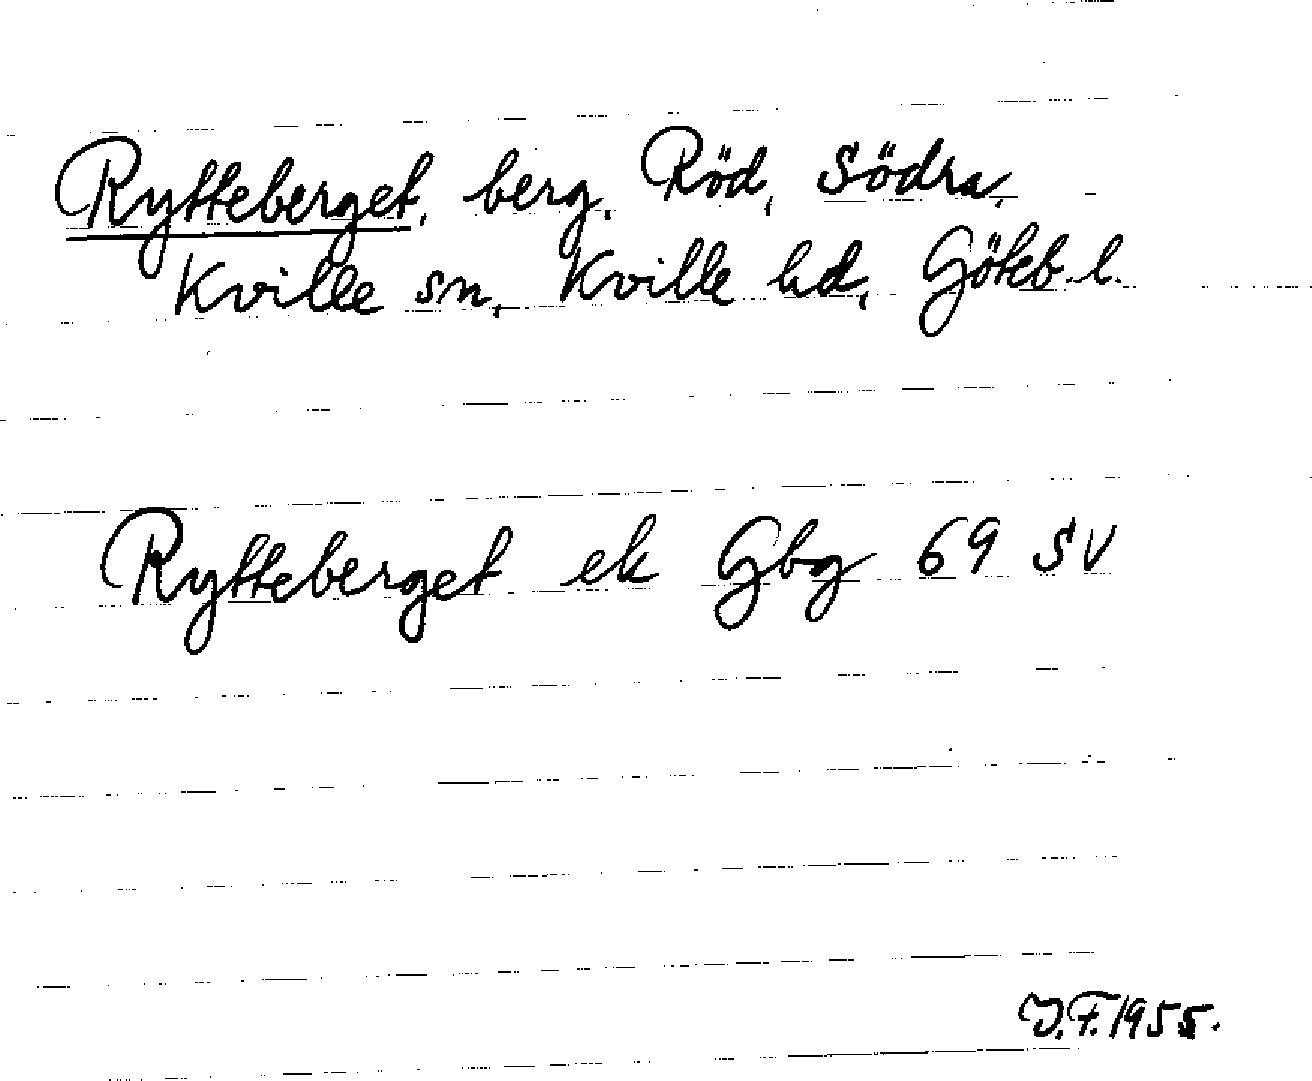 Rytteberget, berg. Röd, Södra,
Kville sn, Kville hd, Göteb. l.
Rytteberget ek Gbg 69 SV
J.F. 1955.